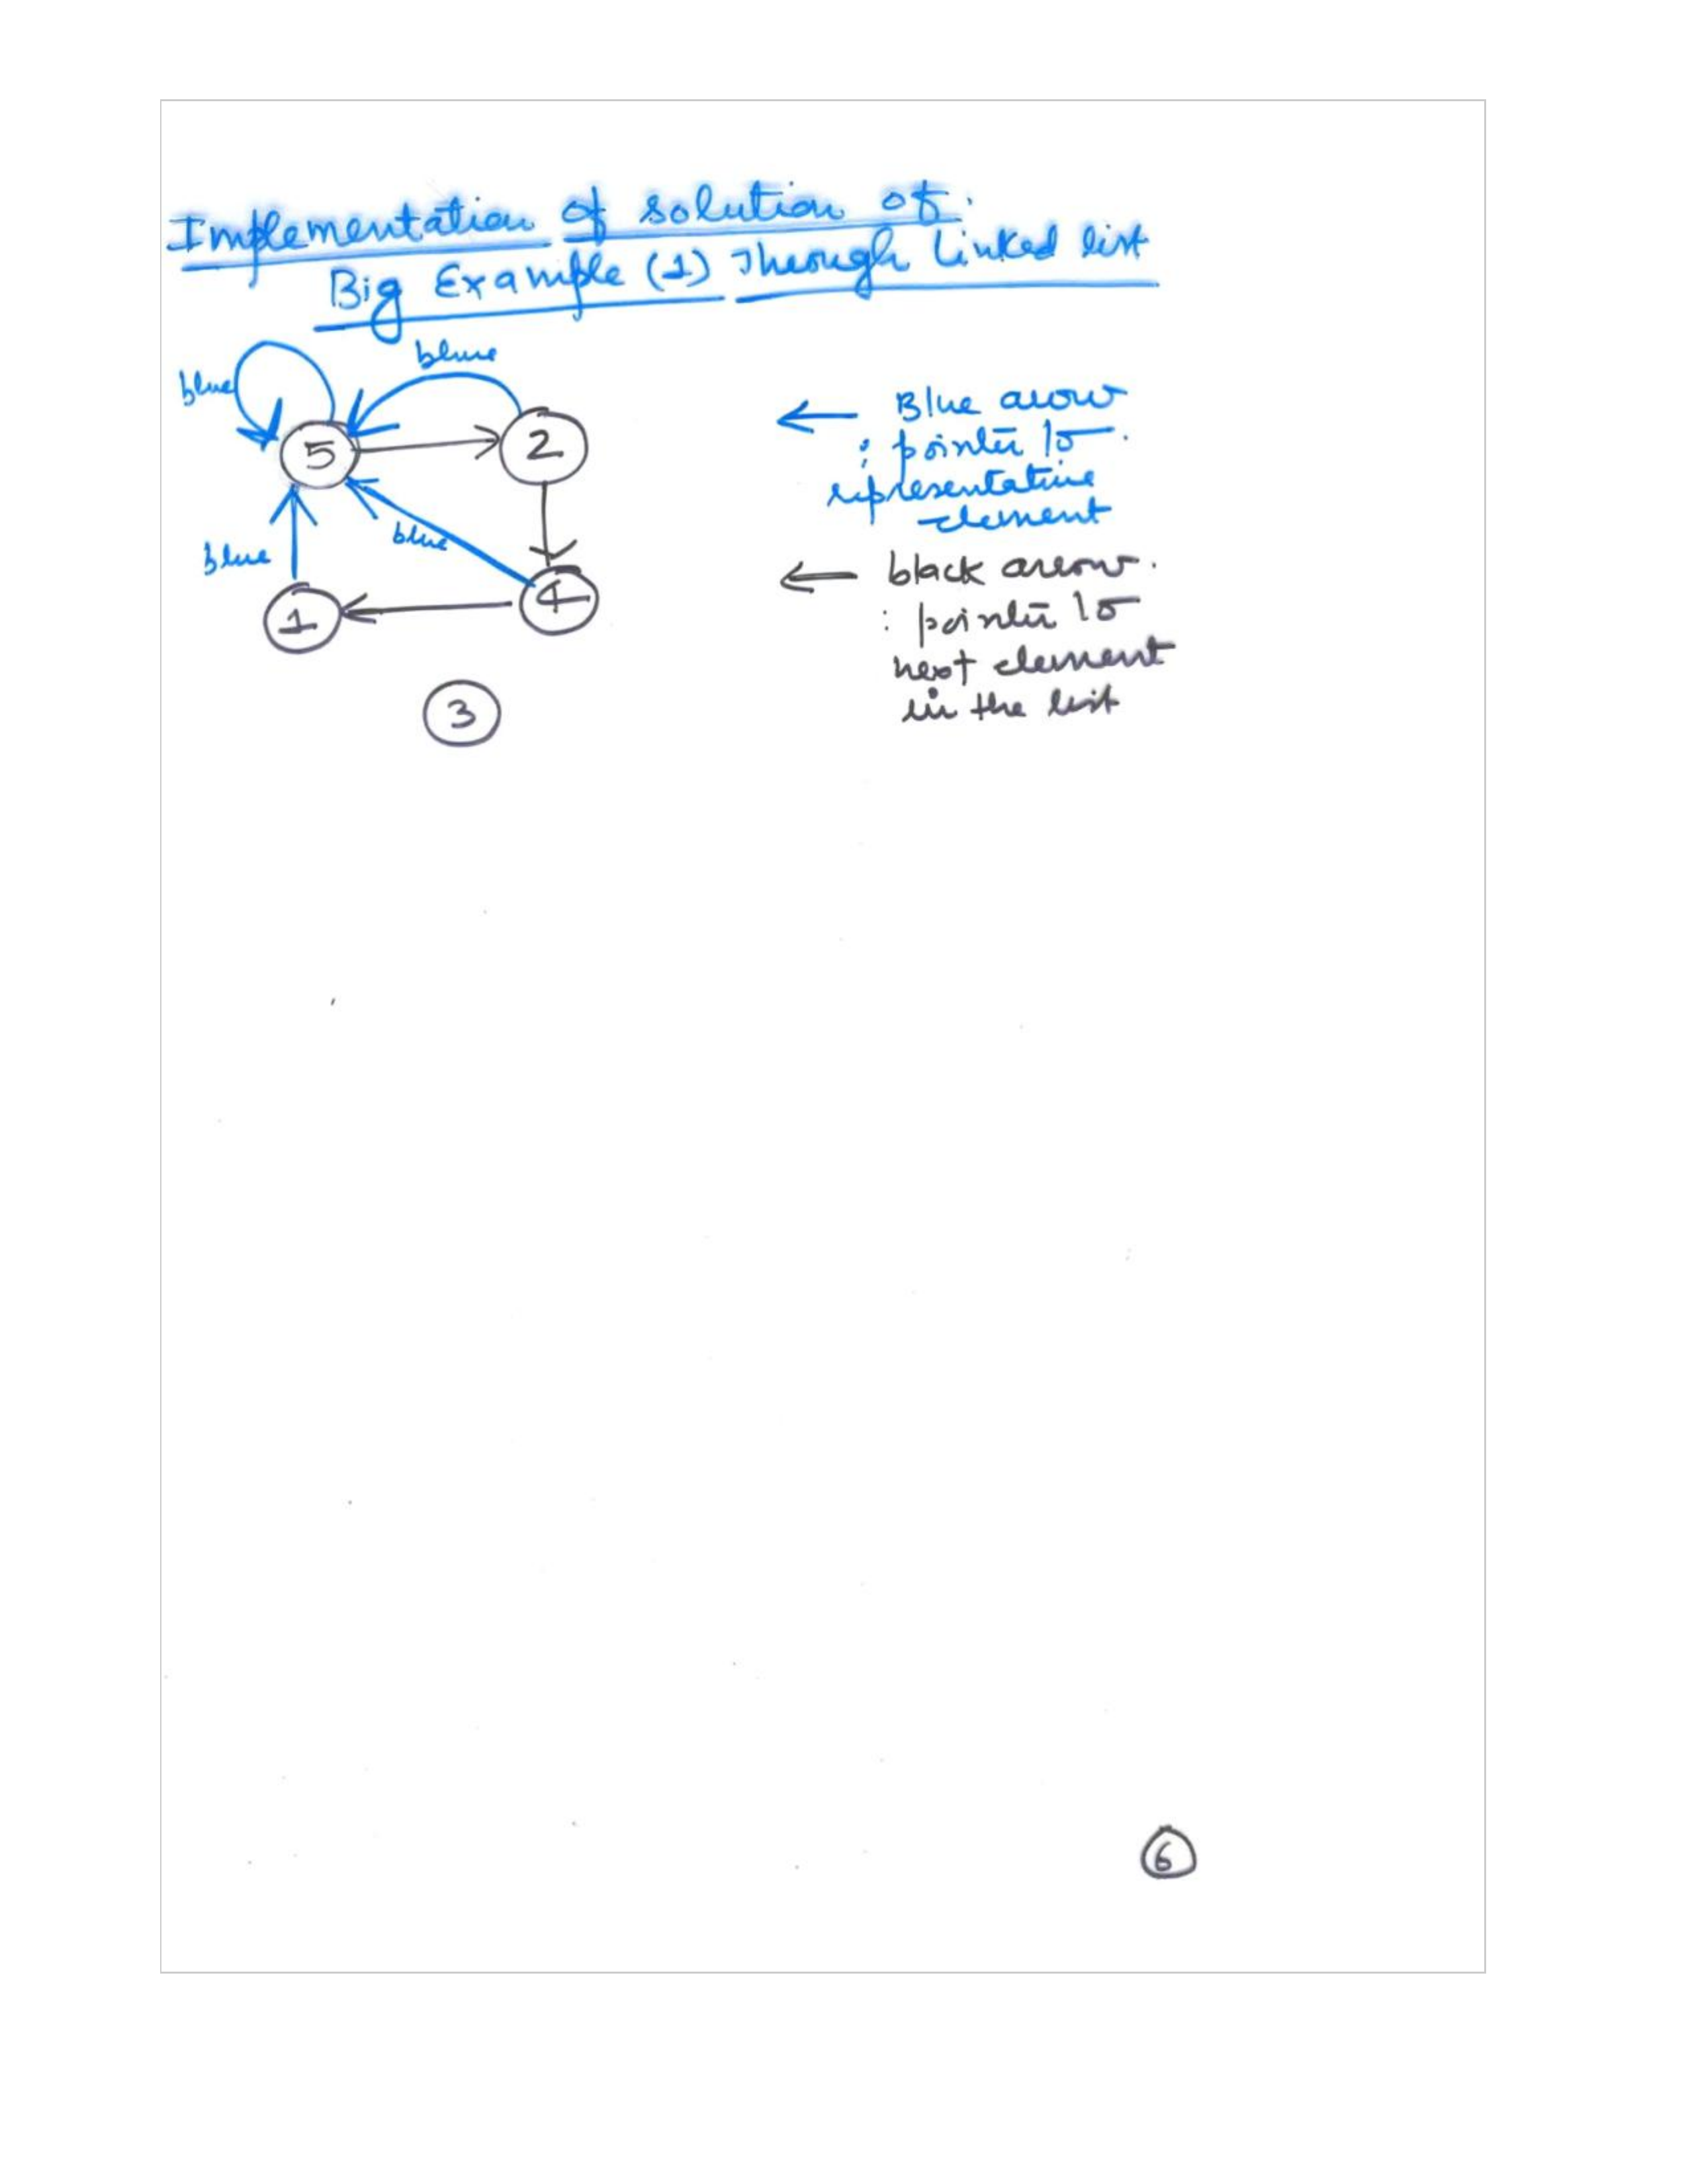 Implementation of solution of
Big Example (1) Through Linked list
blue
blue
5
2
blue
blue
1
4
3
← Blue arrow
: pointer to
representative
element
← black arrow.
: pointer to
next element
in the list
6